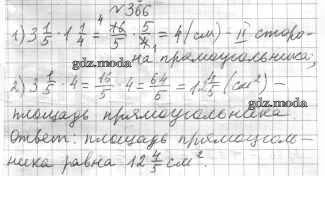 №366
1) 3 1/5 · 1 1/4 = 16/5 · 5/4 = 4 (см) - II сторо-
на прямоугольника;
gdz.moda
gdz.moda
2) 3 1/5 · 4 = 16/5 · 4 = 64/5 = 12 4/5 (см²) -
gdz.moda
площадь прямоугольника
Ответ: площадь прямоуголь-
ника равна 12 4/5 см².